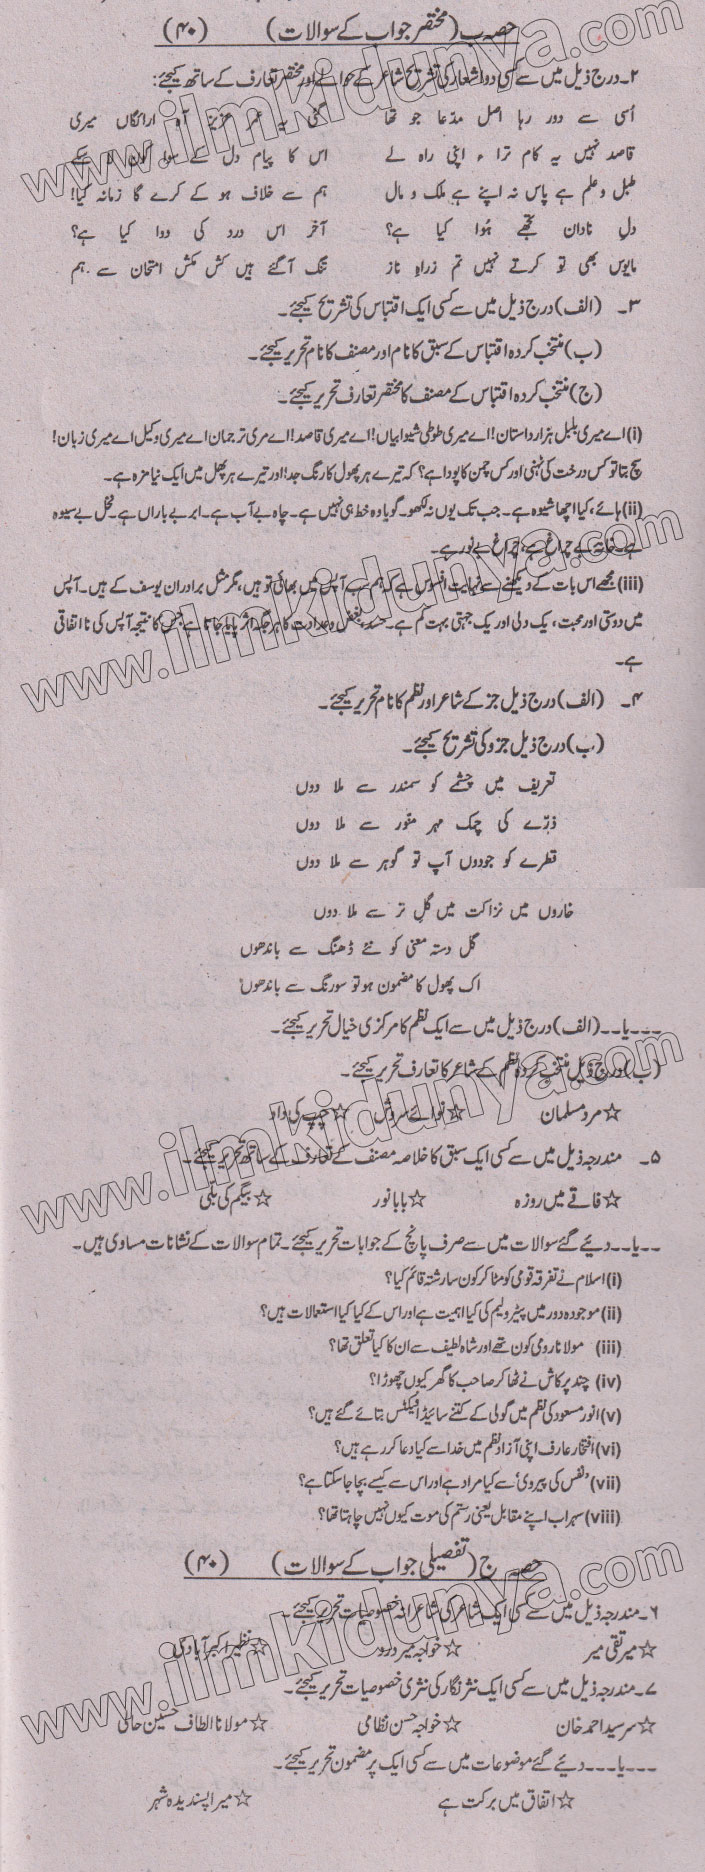 حصہ ب (مختصر جواب کے سوالات) (۴۰)
۲۔ درج ذیل میں سے کسی دو اشعار کی تشریح شاعر کے حوالے اور مختصر تعارف کے ساتھ کیجئے:
اُسی سے دور رہا اصل مدّعا جو تھا گئی یہ عمرِ عزیز آہ رائگاں میری
قاصد نہیں یہ کام ترا، اپنی راہ لے اس کا پیام دل کے سوا کون لا سکے
طبل و علم ہے پاس نہ اپنے ہے ملک و مال ہم سے خلاف ہو کے کرے گا زمانہ کیا!
دلِ ناداں تجھے ہُوا کیا ہے؟ آخر اس درد کی دوا کیا ہے؟
مایوس بھی تو کرتے نہیں تم زراہِ ناز تنگ آگئے ہیں کش مکش امتحان سے ہم
۳۔ (الف) درج ذیل میں سے کسی ایک اقتباس کی تشریح کیجئے۔
(ب) منتخب کردہ اقتباس کے سبق کا نام اور مصنف کا نام تحریر کیجئے۔
(ج) منتخب کردہ اقتباس کے مصنف کا مختصر تعارف تحریر کیجئے۔
(i) اے میری بلبل ہزار داستان! اے میری طوطی شیوا بیاں! اے میری قاصد! اے مری ترجمان اے میری وکیل اے میری زبان!
سچ بتا تو کس درخت کی ٹہنی اور کس چمن کا پودا ہے؟ کہ تیرے ہر پھول کا رنگ جدا اور تیرے ہر پھل میں ایک نیا مزہ ہے۔
(ii) ہائے، کیا اچھا شیوہ ہے۔ جب تک یوں نہ لکھو۔ گویا وہ خط ہی نہیں ہے۔ چاہ بے آب ہے۔ ابر بے باراں ہے۔ نخل بے میوہ
ہے۔ خانہ بے چراغ ہے، چراغ بے نور ہے۔
(iii) مجھے اس بات کے دیکھنے سے نہایت افسوس ہے کہ ہم سب آپس میں بھائی تو ہیں، مگر مثل برادران یوسف کے ہیں۔ آپس
میں دوستی اور محبت، یک دلی اور یک جہتی بہت کم ہے۔ حسد، بغض و عداوت کا ہر جگہ اثر پایا جاتا ہے جس کا نتیجہ آپس کی نا اتفاقی
ہے۔
۴۔ (الف) درج ذیل جز کے شاعر اور نظم کا نام تحریر کیجئے۔
(ب) درج ذیل جزو کی تشریح کیجئے۔
تعریف میں چشمے کو سمندر سے ملا دوں
ذرّے کی چمک مہرِ منّور سے ملا دوں
قطرے کو جو دوں آب تو گوہر سے ملا دوں
خاروں میں نزاکت میں گلِ تر سے ملا دوں
گل دستہ معنی کو نئے ڈھنگ سے باندھوں
اک پھول کا مضمون ہو تو سو رنگ سے باندھوں
---یا--- (الف) درج ذیل میں سے ایک نظم کا مرکزی خیال تحریر کیجئے۔
(ب) درج ذیل منتخب کردہ نظم کے شاعر کا تعارف تحریر کیجئے۔
☆ مرد مسلمان ☆ نوائے سروش ☆ چپ کی داد
۵۔ مندرجہ ذیل میں سے کسی ایک سبق کا خلاصہ مصنف کے تعارف کے ساتھ تحریر کیجئے۔
☆ فاقے میں روزہ ☆ بابا نور ☆ بیگم کی بلی
--یا-- دئیے گئے سوالات میں سے صرف پانچ کے جوابات تحریر کیجئے۔ تمام سوالات کے نشانات مساوی ہیں۔
(i) اسلام نے تفرقہ قومی کو مٹا کر کون سا رشتہ قائم کیا؟
(ii) موجودہ دور میں پٹرولیم کی کیا اہمیت ہے اور اس کے کیا کیا استعمالات ہیں؟
(iii) مولانا رومی کون تھے اور شاہ لطیف سے ان کا کیا تعلق تھا؟
(iv) چندر پرکاش نے ٹھاکر صاحب کا گھر کیوں چھوڑا؟
(v) انور مسعود کی نظم میں گولی کے کتنے سائیڈ افیکٹس بتائے گئے ہیں؟
(vi) افتخار عارف اپنی آزاد نظم میں خدا سے کیا دعا کر رہے ہیں؟
(vii) 'نفس کی پیروی' سے کیا مراد ہے اور اس سے کیسے بچا جا سکتا ہے؟
(viii) سہراب اپنے مقابل یعنی رستم کی موت کیوں نہیں چاہتا تھا؟
حصہ ج (تفصیلی جواب کے سوالات) (۴۰)
۶۔ مندرجہ ذیل میں سے کسی ایک شاعر کی شاعرانہ خصوصیات تحریر کیجئے۔
☆ میر تقی میر ☆ خواجہ میر درد ☆ نظیر اکبر آبادی
۷۔ مندرجہ ذیل میں سے کسی ایک نثر نگار کی نثری خصوصیات تحریر کیجئے۔
☆ سر سید احمد خان ☆ خواجہ حسن نظامی ☆ مولانا الطاف حسین حالی
---یا--- دئیے گئے موضوعات میں سے کسی ایک پر مضمون تحریر کیجئے۔
☆ اتفاق میں برکت ہے ☆ میرا پسندیدہ شہر
www.ilmkidunya.com
www.ilmkidunya.com
www.ilmkidunya.com
www.ilmkidunya.com